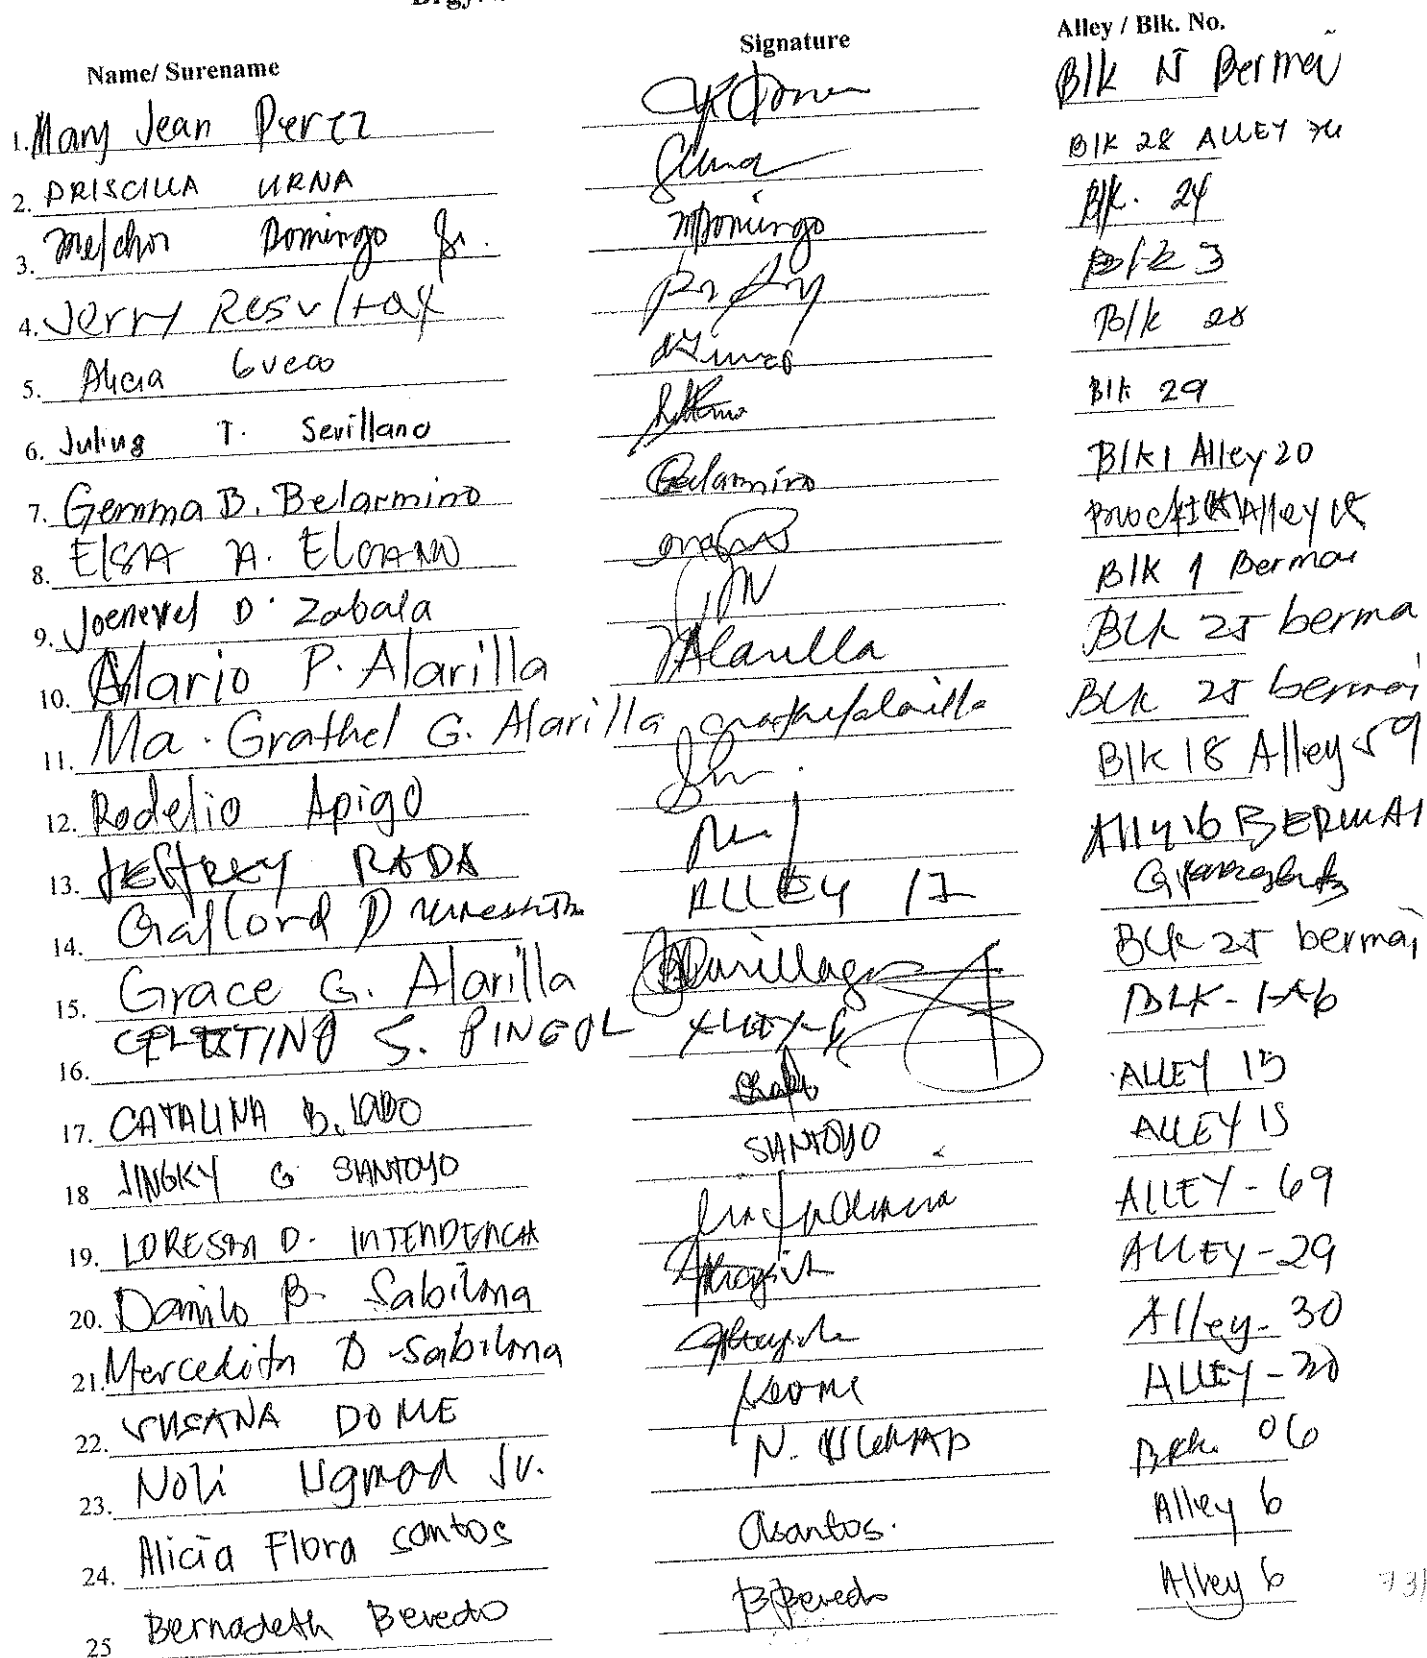 Name/ Surename Signature Alley / Blk. No.
1. Mary Jean Perez Blk N Bermai
2. PRISCILLA URNA Blk 28 ALLEY 74
3. Melchor Domingo Jr. MDomingo Blk. 24
4. Jerry Resultay Blk 3
5. Alicia Gueco Blk 28
6. Julius T. Sevillano Blk 29
7. Gemma B. Belarmino Belarmino Blk 1 Alley 20
8. Elsa A. Alley 15
9. D. Zabala Blk 1 Bermai
10. Mario P. Alarilla Alarilla BLK 25 berma
11. Ma. Grathel G. Alarilla BLK 25 bermai
12. Rodelio Apigo Blk 18 Alley 59
13. JEFFREY RADA Ally 16 BERMAI
14. Gaylord D ALLEY 17
15. Grace G. Alarilla BLK 25 bermai
16. CELESTINO S. PINGOL ALLEY-6 BLK-1-A6
17. CATALINA B. LADO ALLEY 15
18 JINGKY G SANTOYO SANTOYO ALLEY 15
19. D. INTENDENCIA ALLEY-69
20. Danilo B. Sabilona ALLEY-29
21. Mercedita D. Sabilona Alley-30
22. SUSANA DOME ALLEY-30
23. Noli Ugmad Jr. Blk. 06
24. Alicia Flora santos asantos. Alley 6
25 Bernadeth Bevedo BBevedo Alley 6